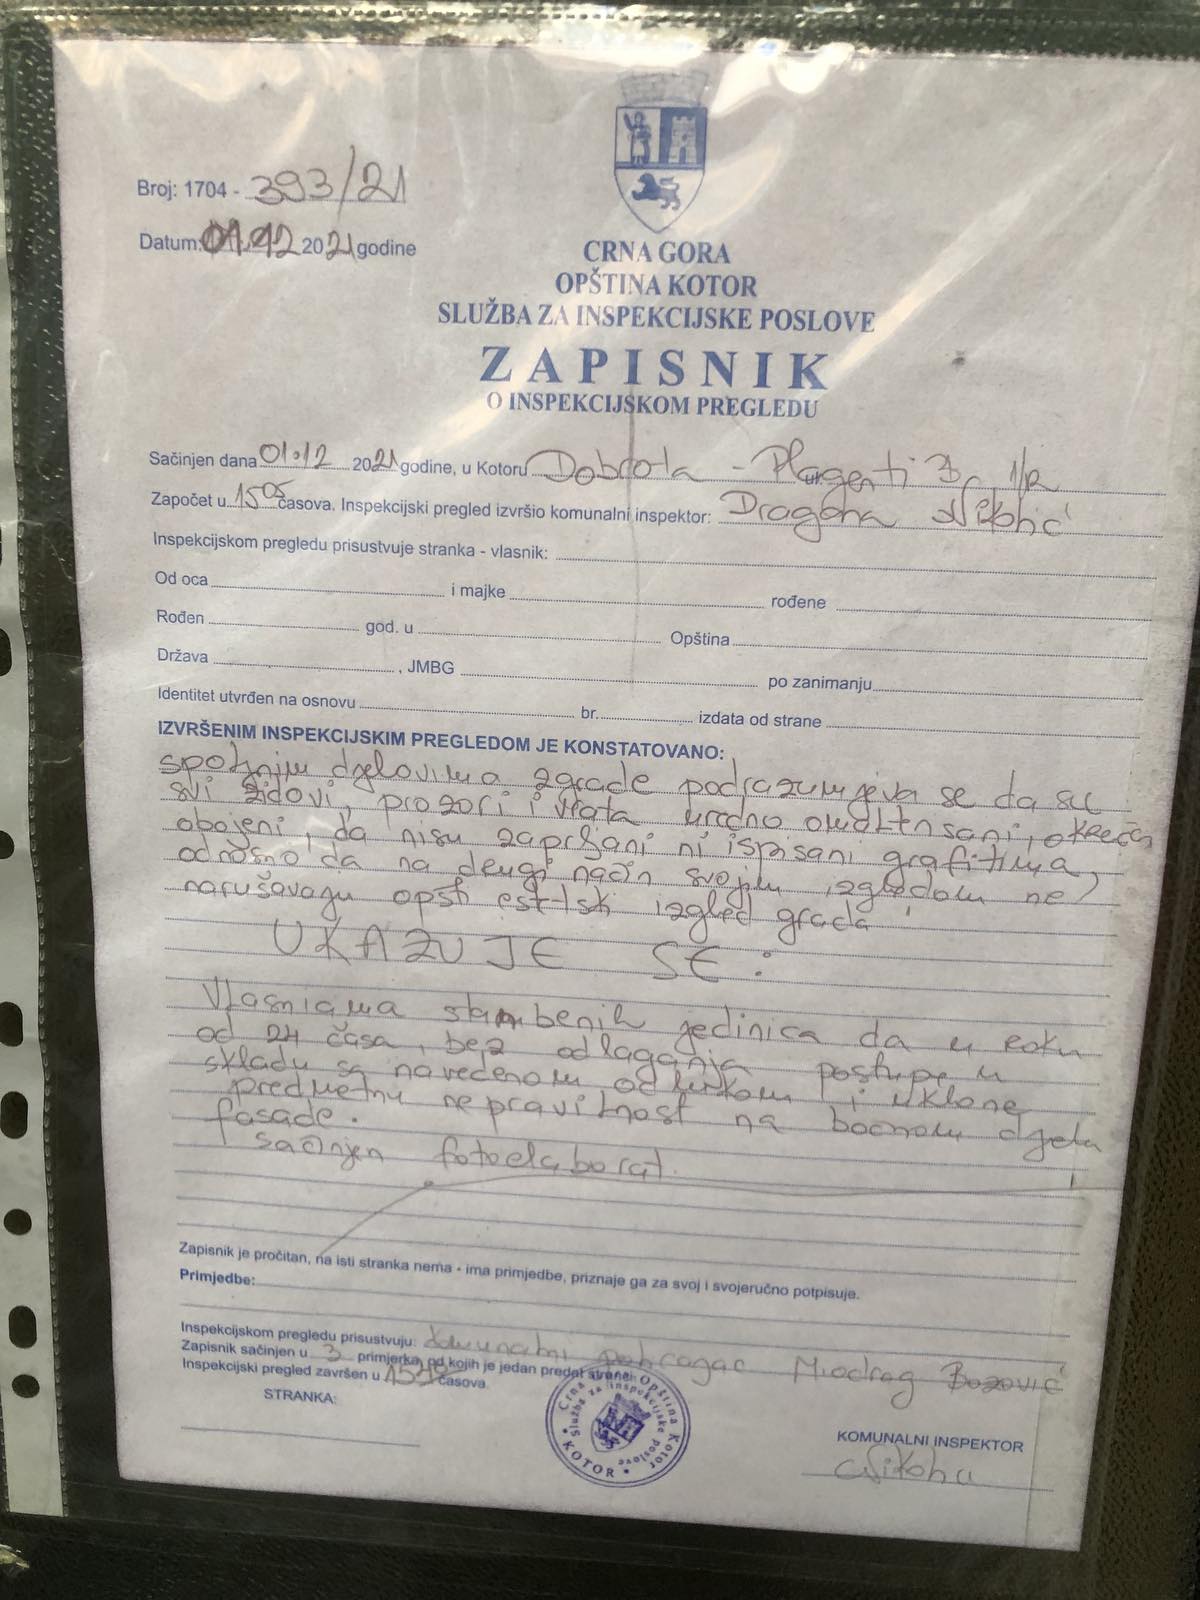 Broj: 1704 - 393/21
Datum: 01.12 2021 godine
CRNA GORA
OPŠTINA KOTOR
SLUŽBA ZA INSPEKCIJSKE POSLOVE
ZAPISNIK
O INSPEKCIJSKOM PREGLEDU
Sačinjen dana 01.12 2021 godine, u Kotoru Dobrota -
Započet u 15 05 časova. Inspekcijski pregled izvršio komunalni inspektor: Dragana Nikolić
Inspekcijskom pregledu prisustvuje stranka - vlasnik:
Od oca i majke rođene
Rođen god. u Opština
Država , JMBG po zanimanju
Identitet utvrđen na osnovu br. izdata od strane
IZVRŠENIM INSPEKCIJSKIM PREGLEDOM JE KONSTATOVANO:
spoljnjim djelovima zgrade podrazumjeva se da su
svi zidovi, prozori i vrata uredno omalterisani, okrečeni
obojeni, da nisu zaprljani ni ispisani grafitima,
odnosno da na drugi način svojim izgledom ne
narušavaju opšti estetski izgled grada
UKAZUJE SE:
Vlasnicima stambenih jedinica da u roku
od 24 časa, bez odlaganja postupe u
skladu sa navedenom odlukom i uklone
predmetnu nepravilnost na bočnom djelu
fasade.
sačinjen fotoelaborat.
Zapisnik je pročitan, na isti stranka nema - ima primjedbe, priznaje ga za svoj i svojeručno potpisuje.
Primjedbe:
Inspekcijskom pregledu prisustvuju: komunalni Miodrag Bozović
Zapisnik sačinjen u 3 primjerka, od kojih je jedan predat stranci
Inspekcijski pregled završen u časova
STRANKA:
Crna Gora Opština Kotor
Služba za inspekcijske poslove
KOTOR
KOMUNALNI INSPEKTOR